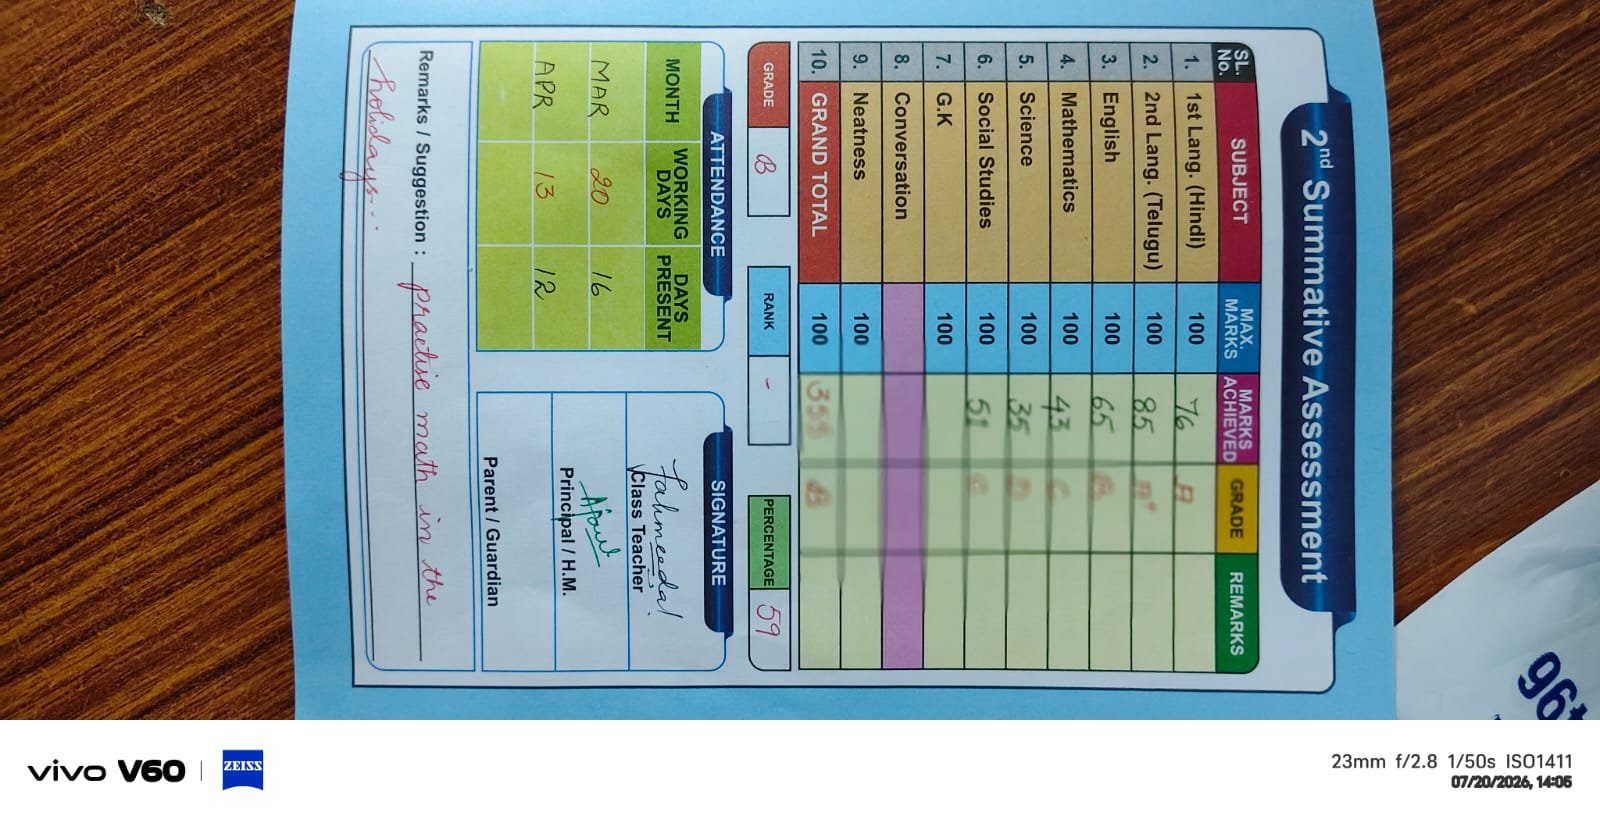 2nd Summative Assessment
SL. No. SUBJECT MAX. MARKS MARKS ACHIEVED GRADE REMARKS
1. 1st Lang. (Hindi) 100 76 A
2. 2nd Lang. (Telugu) 100 85 A+
3. English 100 65 B
4. Mathematics 100 43 C
5. Science 100 35 D
6. Social Studies 100 51 C
7. G.K 100
8. Conversation
9. Neatness 100
10. GRAND TOTAL 100 355 B
GRADE B RANK - PERCENTAGE 59
ATTENDANCE
MONTH WORKING DAYS DAYS PRESENT
MAR 20 16
APR 13 12
SIGNATURE
Fahmeeda!
Class Teacher
Principal / H.M.
Parent / Guardian
Remarks / Suggestion : practise math in the
holidays...
96
vivo V60 | ZEISS
23mm f/2.8 1/50s ISO1411
07/20/2026, 14:05